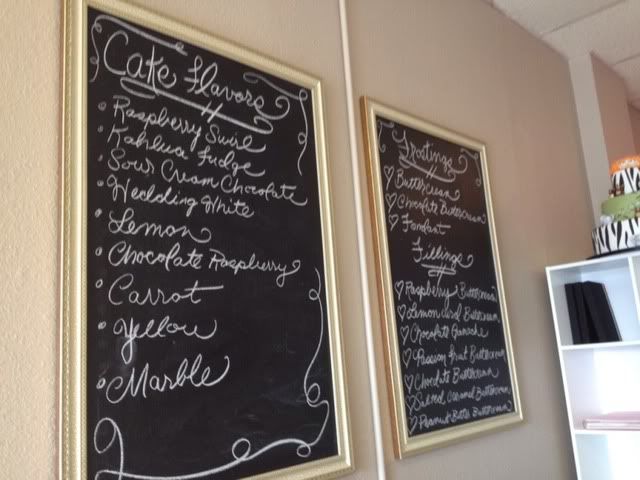 Cake Flavors
Raspberry Swirl
Kahlua Fudge
Sour Cream Chocolate
Wedding White
Lemon
Chocolate Raspberry
Carrot
Yellow
Marble
Frostings
Buttercream
Chocolate Buttercream
Fondant
Fillings
Raspberry Buttercream
Lemon curd Buttercream
Chocolate Ganache
Passion fruit Buttercream
Chocolate Buttercream
Salted Caramel Buttercream
Peanut Butter Buttercream